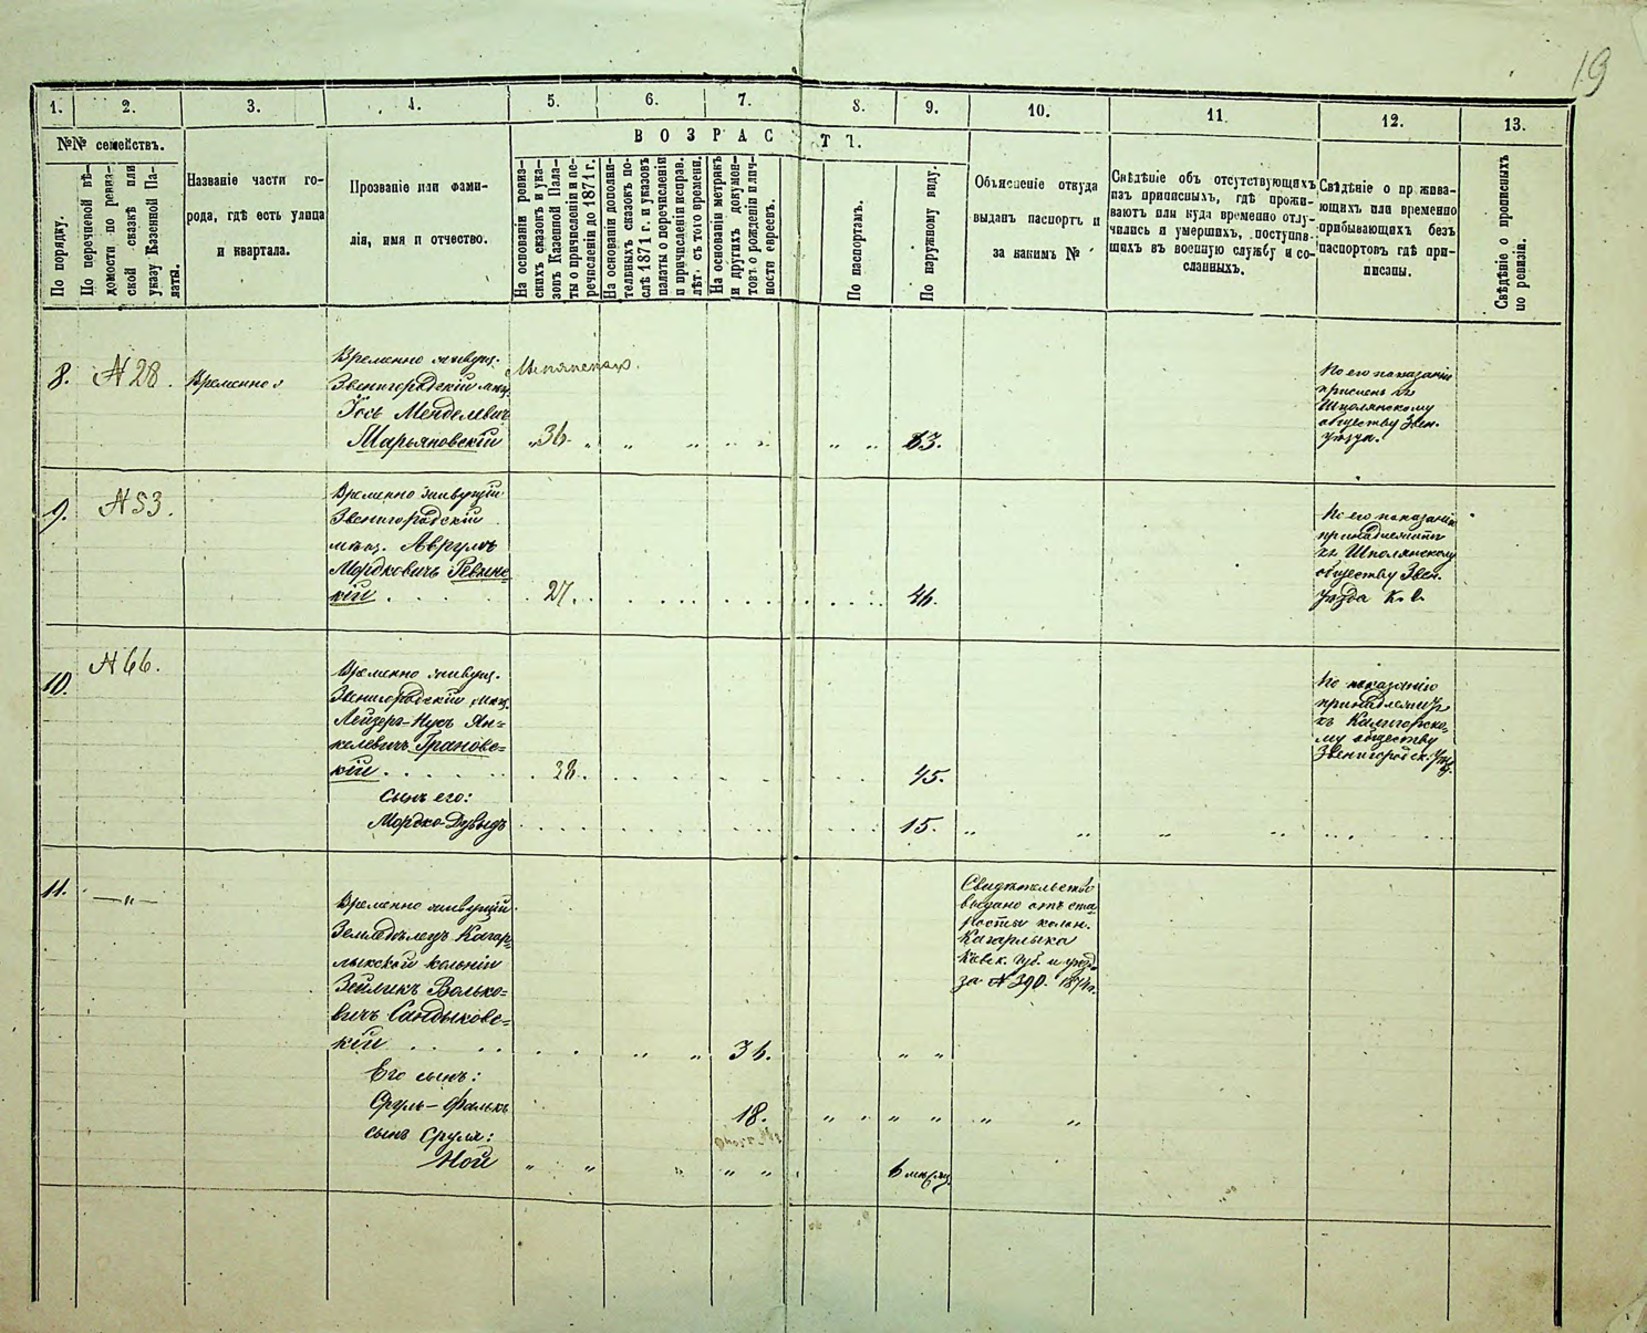 19
1. 2. 3. 4. 5. 6. 7. 8. 9. 10. 11. 12. 13.
№№ семействъ.
По порядку.
По перечневой вѣ-
домости по ревиз-
ской сказкѣ или
указу Казенной Па-
латы.
Названіе части го-
рода, гдѣ есть улица
и квартала.
Прозваніе или фами-
лія, имя и отчество.
ВОЗРАСТЪ.
На основаніи ревиз-
скихъ сказокъ и ука-
зовъ Казенной Пала-
ты о причисленіи и пе-
речисленіи до 1871 г.
На основаніи дополни-
тельныхъ сказокъ по-
слѣ 1871 г. и указовъ
палаты о перечисленіи
и причисленіи исправ.
лѣт. съ того времени.
На основаніи метрикъ
и другихъ докумен-
товъ о рожденіи и лич-
ности евреевъ.
По паспортамъ.
По наружному виду.
Объясненіе откуда
выданъ паспортъ и
за какимъ №
Свѣдѣніе объ отсутствующихъ
изъ приписныхъ, гдѣ прожи-
ваютъ или куда временно отлу-
чились и умершихъ, поступив-
шихъ въ военную службу и со-
сланныхъ.
Свѣдѣніе о прожива-
ющихъ или временно
прибывающихъ безъ
паспортовъ гдѣ при-
писаны.
Свѣдѣніе о прописныхъ
по ревизіи.
8. № 28. Временно
Временно живущ.
Звенигородскій мѣщ.
Іось Менделевичъ
Марьяновскій 36. 63.
По его показанію
Шполянскому
обществу Звен.
уѣзда.
9. № 53.
Временно живущій
Звенигородскій
мѣщ. Аврумъ
Мордковичъ Ревинс-
кій 27. 46.
По его показанію
принадлежитъ
къ Шполянскому
обществу Звен.
уѣзда К. г.
10. № 66.
Временно живущ.
Звенигородскій мѣщ.
Лейзеръ-Нусъ Ян-
келевичъ Грановс-
кій 28. 45.
Сынъ его:
Мордко-Дувидъ 15.
По показанію
принадлежитъ
къ Калигорско-
му обществу
Звенигородск. уѣз.
11. —„—
Временно живущій
Земледѣлецъ Кагар-
лыкской колоніи
Зейликъ Волько-
вичъ Сандыковс-
кій 36.
Его сынъ:
Сруль-Фалькъ 18.
сынъ Сруля:
Ной 6 мѣсяц.
Свидѣтельство
выдано отъ ста-
росты колон.
Кагарлыка
Кіевск. губ. и уѣзд.
за № 390. 1874 г.